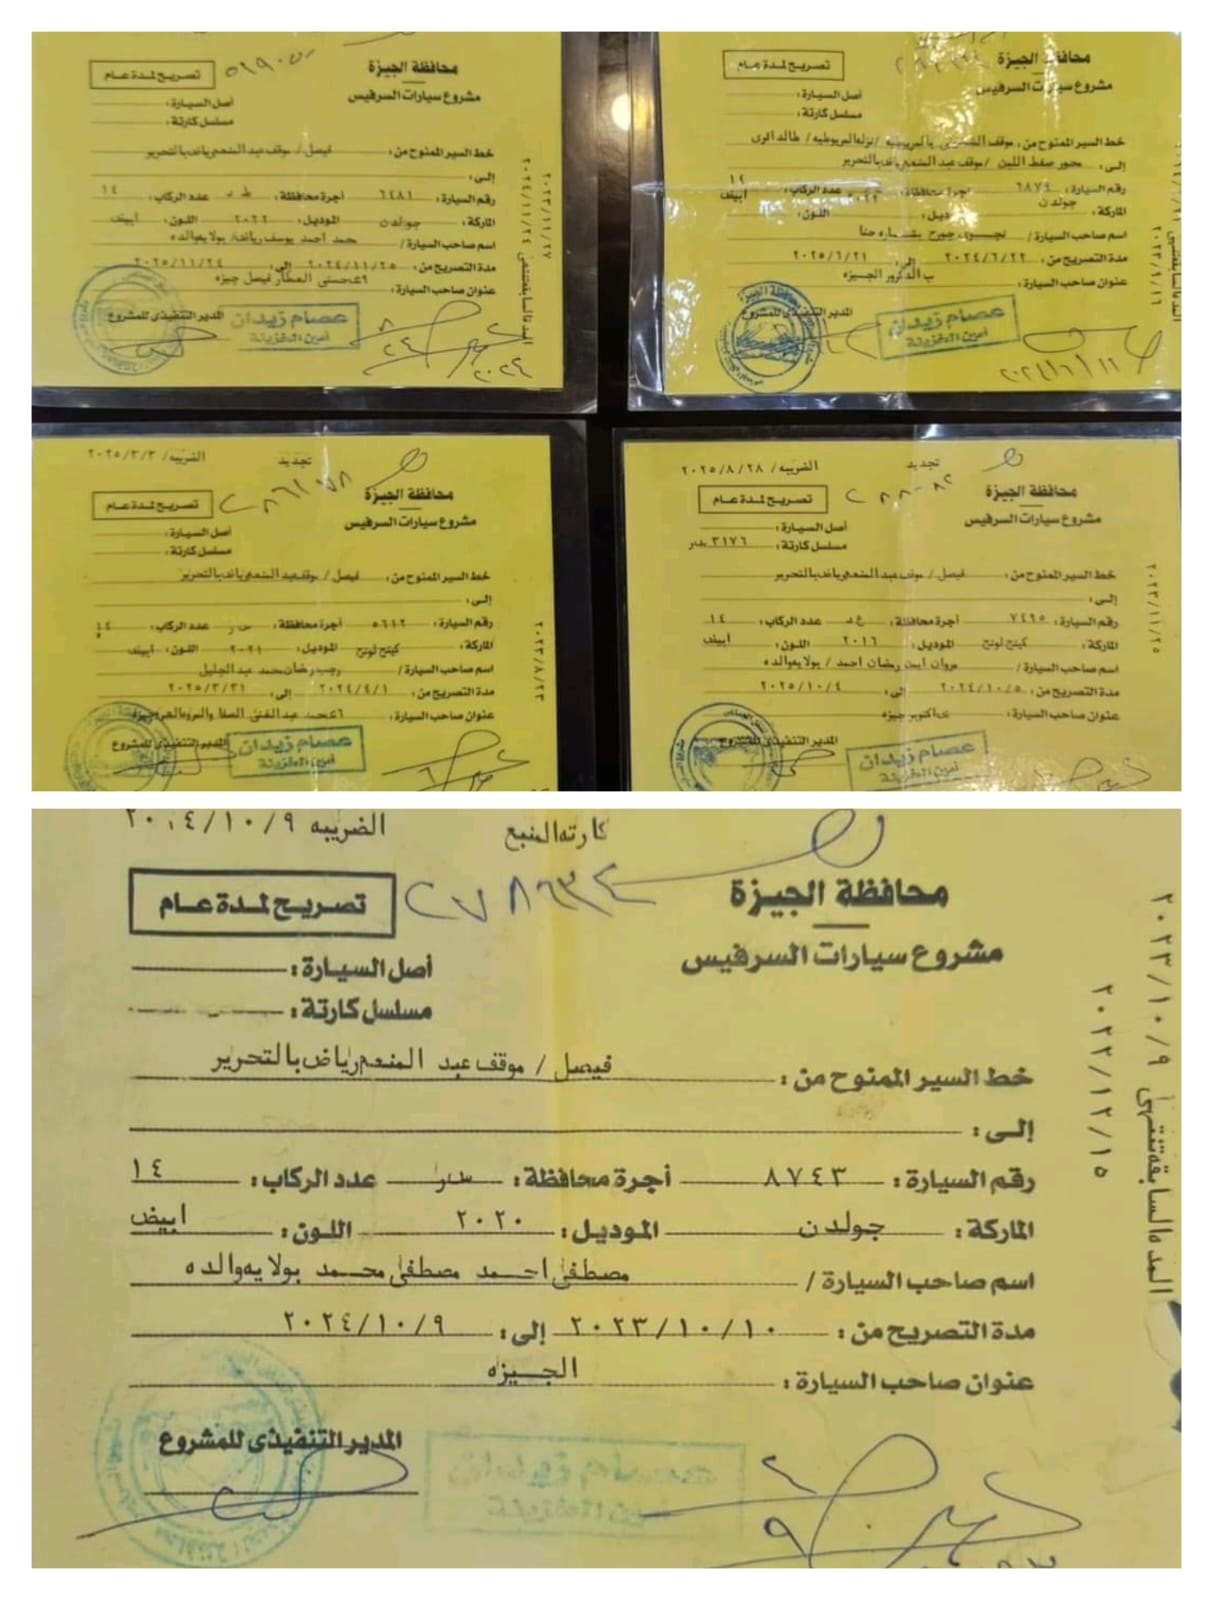 محافظة الجيزة
تصريح لمدة عام
مشروع سيارات السرفيس
أصل السيارة:
مسلسل كارتة:
خط السير الممنوح من: فيصل / موقف عبد المنعم رياض بالتحرير
إلى:
رقم السيارة: ٦٤٨١ أجرة محافظة: عدد الركاب: ١٤
الماركة: جولدن الموديل: ٢٠٢٢ اللون: أبيض
اسم صاحب السيارة / محمد احمد يوسف رياض/ بولايه والده
مدة التصريح من: ٢٠٢٤/١١/٢٥ إلى: ٢٠٢٥/١١/٢٤
عنوان صاحب السيارة: حسنى العطار فيصل جيزه
المدير التنفيذى للمشروع
عصام زيدان
أمين الخزينة
٢٠٢٣/١١/٢٧
محافظة الجيزة
تصريح لمدة عام
مشروع سيارات السرفيس
أصل السيارة:
مسلسل كارتة:
خط السير الممنوح من: موقف بالمريوطيه / نزله المريوطيه /
إلى: محور صفط اللبن / موقف عبد المنعم رياض بالتحرير
رقم السيارة: ٦٨٧٩ أجرة محافظة: عدد الركاب: ١٤
الماركة: جولدن الموديل: اللون: أبيض
اسم صاحب السيارة / جورج حنا
مدة التصريح من: ٢٠٢٤/٦/٢٢ إلى: ٢٠٢٥/٦/٢١
عنوان صاحب السيارة: الجيزه
المدير التنفيذى للمشروع
عصام زيدان
أمين الخزينة
تجديد الضريبه/ ٢٠٢٥/٣/٣
محافظة الجيزة
تصريح لمدة عام
مشروع سيارات السرفيس
أصل السيارة:
مسلسل كارتة:
خط السير الممنوح من: فيصل / موقف عبد المنعم رياض بالتحرير
إلى:
رقم السيارة: ٥٦١٢ أجرة محافظة: عدد الركاب: ١٤
الماركة: كينج لونج الموديل: ٢٠٢١ اللون: أبيض
اسم صاحب السيارة / رجب رمضان محمد عبد الجليل
مدة التصريح من: ٢٠٢٤/٤/١ إلى: ٢٠٢٥/٣/٣١
عنوان صاحب السيارة: محمد عبد الغنى
المدير التنفيذى للمشروع
عصام زيدان
أمين الخزينة
٢٠٢٣/٨/٢٣
تجديد الضريبه/ ٢٠٢٥/٨/٢٨
محافظة الجيزة
تصريح لمدة عام
مشروع سيارات السرفيس
أصل السيارة:
مسلسل كارتة: ٣١٧٦
خط السير الممنوح من: فيصل / موقف عبد المنعم رياض بالتحرير
إلى:
رقم السيارة: ٧٤٦٥ أجرة محافظة: عدد الركاب: ١٤
الماركة: كينج لونج الموديل: ٢٠١٦ اللون: أبيض
اسم صاحب السيارة / مروان ايمن رمضان احمد / بولايه والده
مدة التصريح من: ٢٠٢٤/١٠/٥ إلى: ٢٠٢٥/١٠/٤
عنوان صاحب السيارة: اكتوبر جيزه
المدير التنفيذى للمشروع
عصام زيدان
أمين الخزينة
٢٠٢٣/١١/٢٥
كارته المنبع الضريبه ٢٠٢٤/١٠/٩
محافظة الجيزة
تصريح لمدة عام
مشروع سيارات السرفيس
أصل السيارة:
مسلسل كارتة:
خط السير الممنوح من: فيصل / موقف عبد المنعم رياض بالتحرير
إلى:
رقم السيارة: ٨٧٤٣ أجرة محافظة: عدد الركاب: ١٤
الماركة: جولدن الموديل: ٢٠٢٠ اللون: ابيض
اسم صاحب السيارة / مصطفى احمد مصطفى محمد بولايه والده
مدة التصريح من: ٢٠٢٣/١٠/١٠ إلى: ٢٠٢٤/١٠/٩
عنوان صاحب السيارة: الجيزه
المدير التنفيذى للمشروع
المده السابقه تنتهى ٢٠٢٣/١٠/٩
٢٠٢٢/١٢/١٥